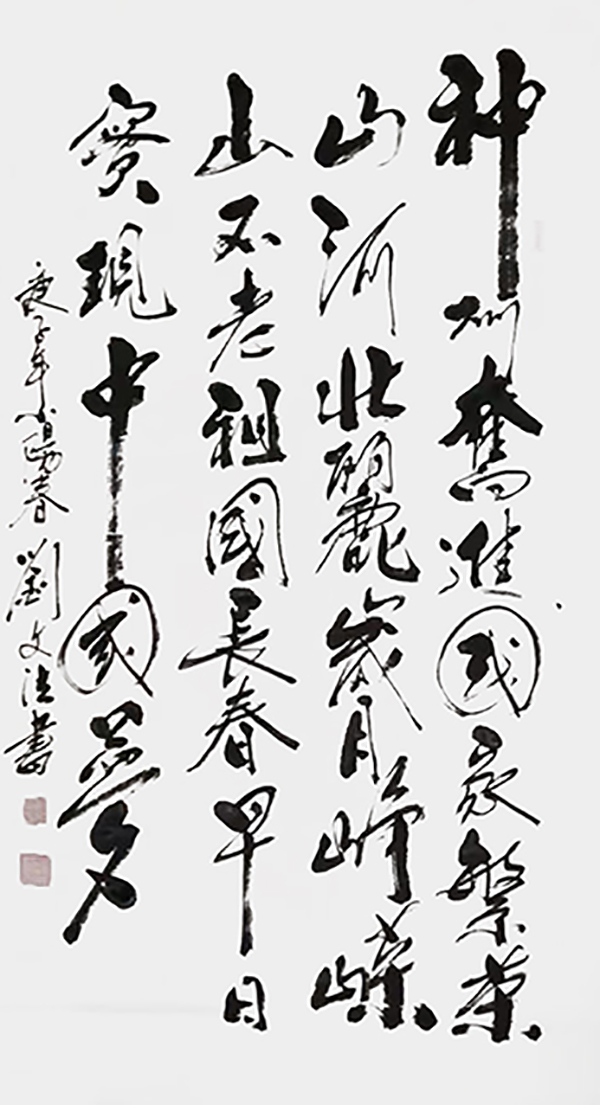 神州奮進國家繁荣
山河壯麗歲月峥嵘
山不老祖國長春早日
實現中國夢
庚子年小陽春劉文法書